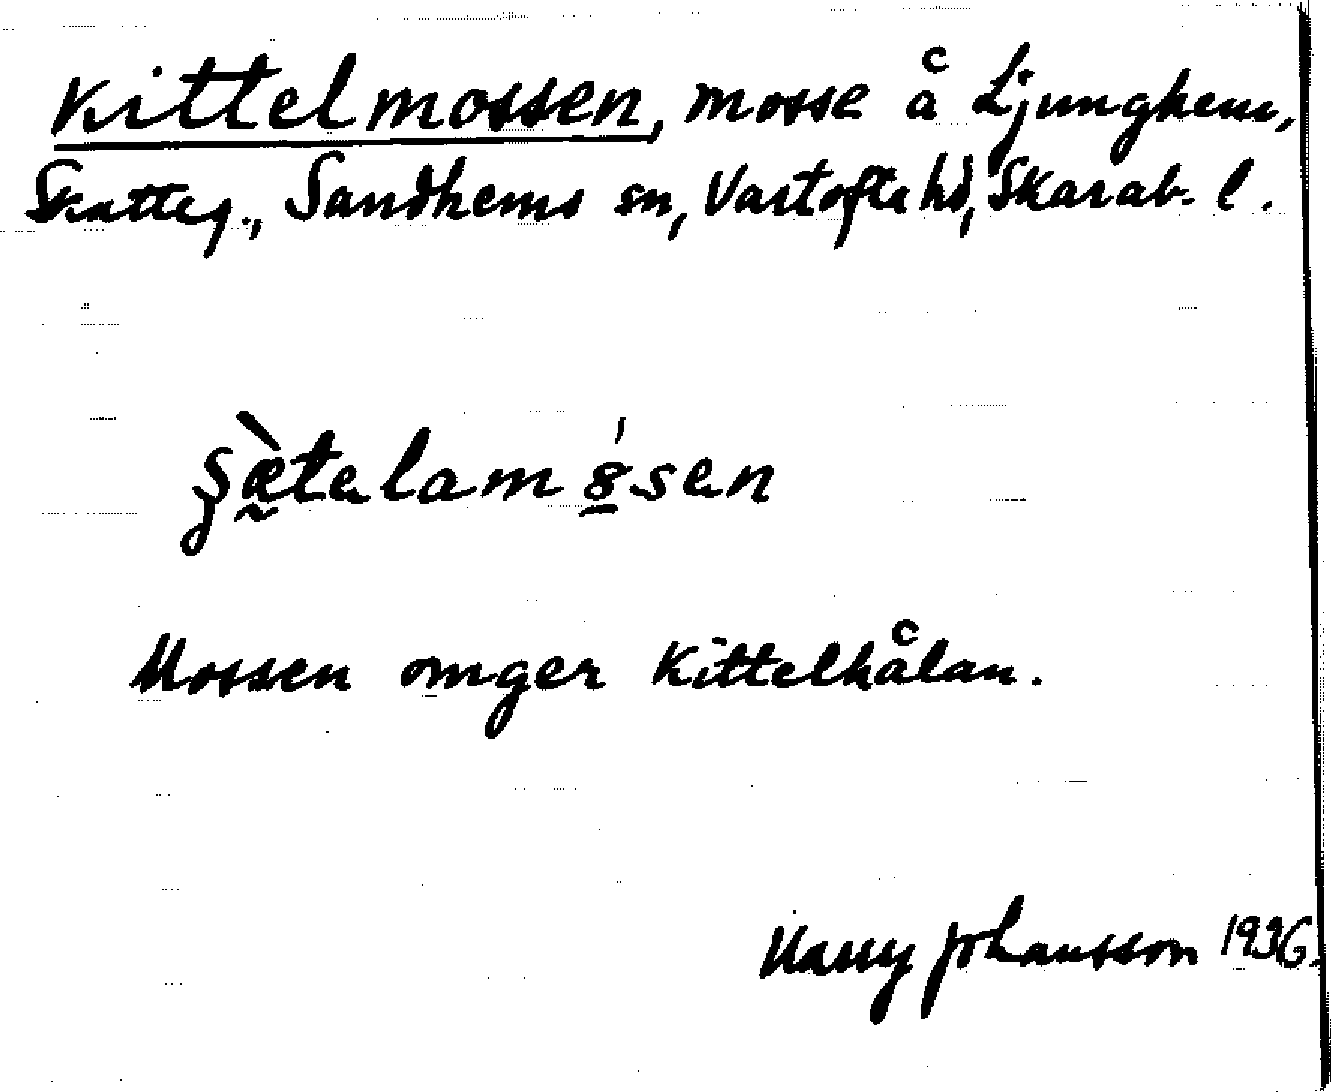 Kittelmossen, mosse å Ljunghem,
Skatteg., Sandhems sn, Vartofta hd, Skarab. l.
Mossen omger Kittelhålan.
Harry Johansson 1936.